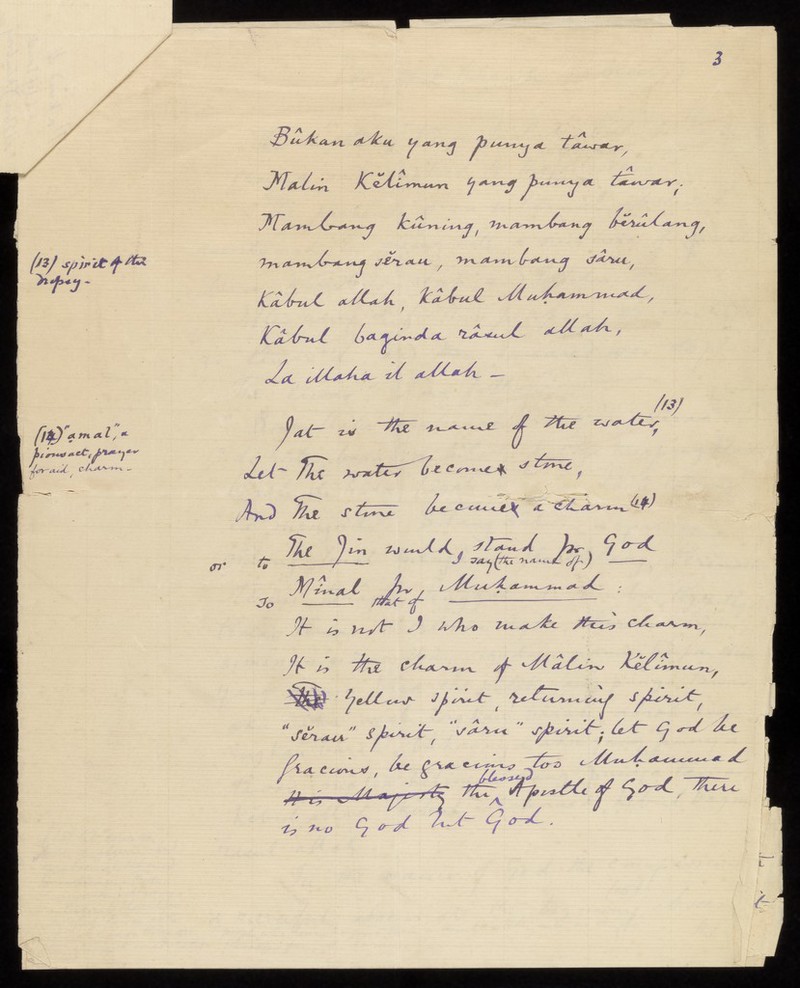 3
Bûkan aku yang punya tâwar,
Malin Kĕlîmun yang punya tâwar;
Mambang kûning, mambang bĕrûlang,
mambang sĕrau, mambang sâru,
Kâbul allah, Kâbul Muhammad,
Kâbul baginda râsul allah,
La illaha il allah —
(13) spirit of the
Jat is the name of the water, (13)
Let the water become stone,
(14) "amal", a
pious act, prayer
for aid, charm -
And the stone become a charm (14)
or to The Jin would, stand for God
I say (the name of)
so Mînal for, Muḥammad :
that of
It is not I who make this charm,
It is the charm of Mâlin Kĕlîmun,
The Yellow spirit, returning spirit,
"sĕrau" spirit, "sâru" spirit; let God be
gracious, be gracious too Muḥammad
His Majesty the blessed Apostle of God, there
is no God but God.